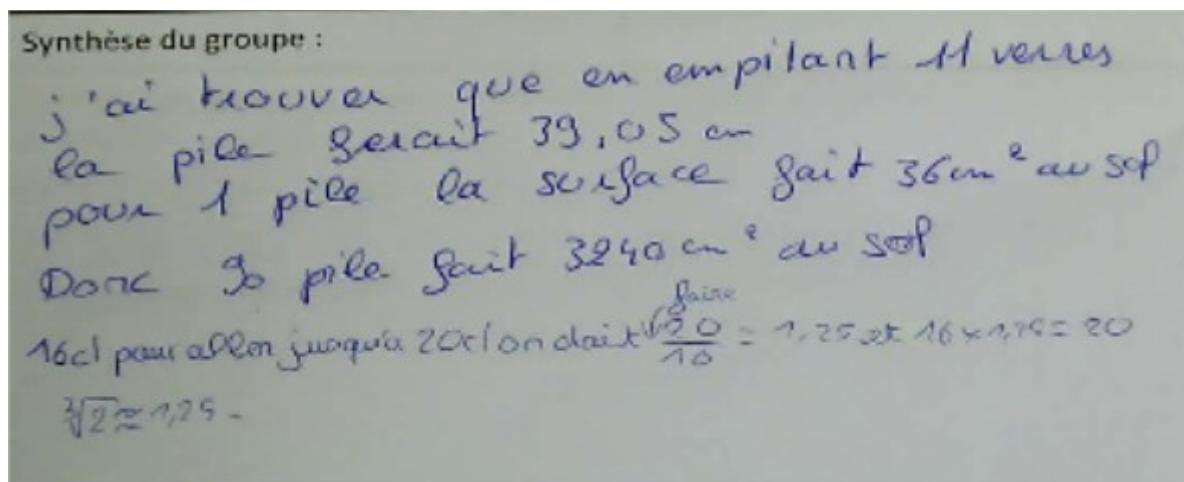 Synthèse du groupe :
j'ai trouver que en empilant 11 verres
la pile ferait 39,05 cm
pour 1 pile la surface fait 36 cm² au sol
Donc 90 pile fait 3240 cm² au sol
16cl pour aller jusqu'a 20cl on doit faire 20/16 = 1,25 et 16 x 1,25 = 20
∛2 ≈ 1,25